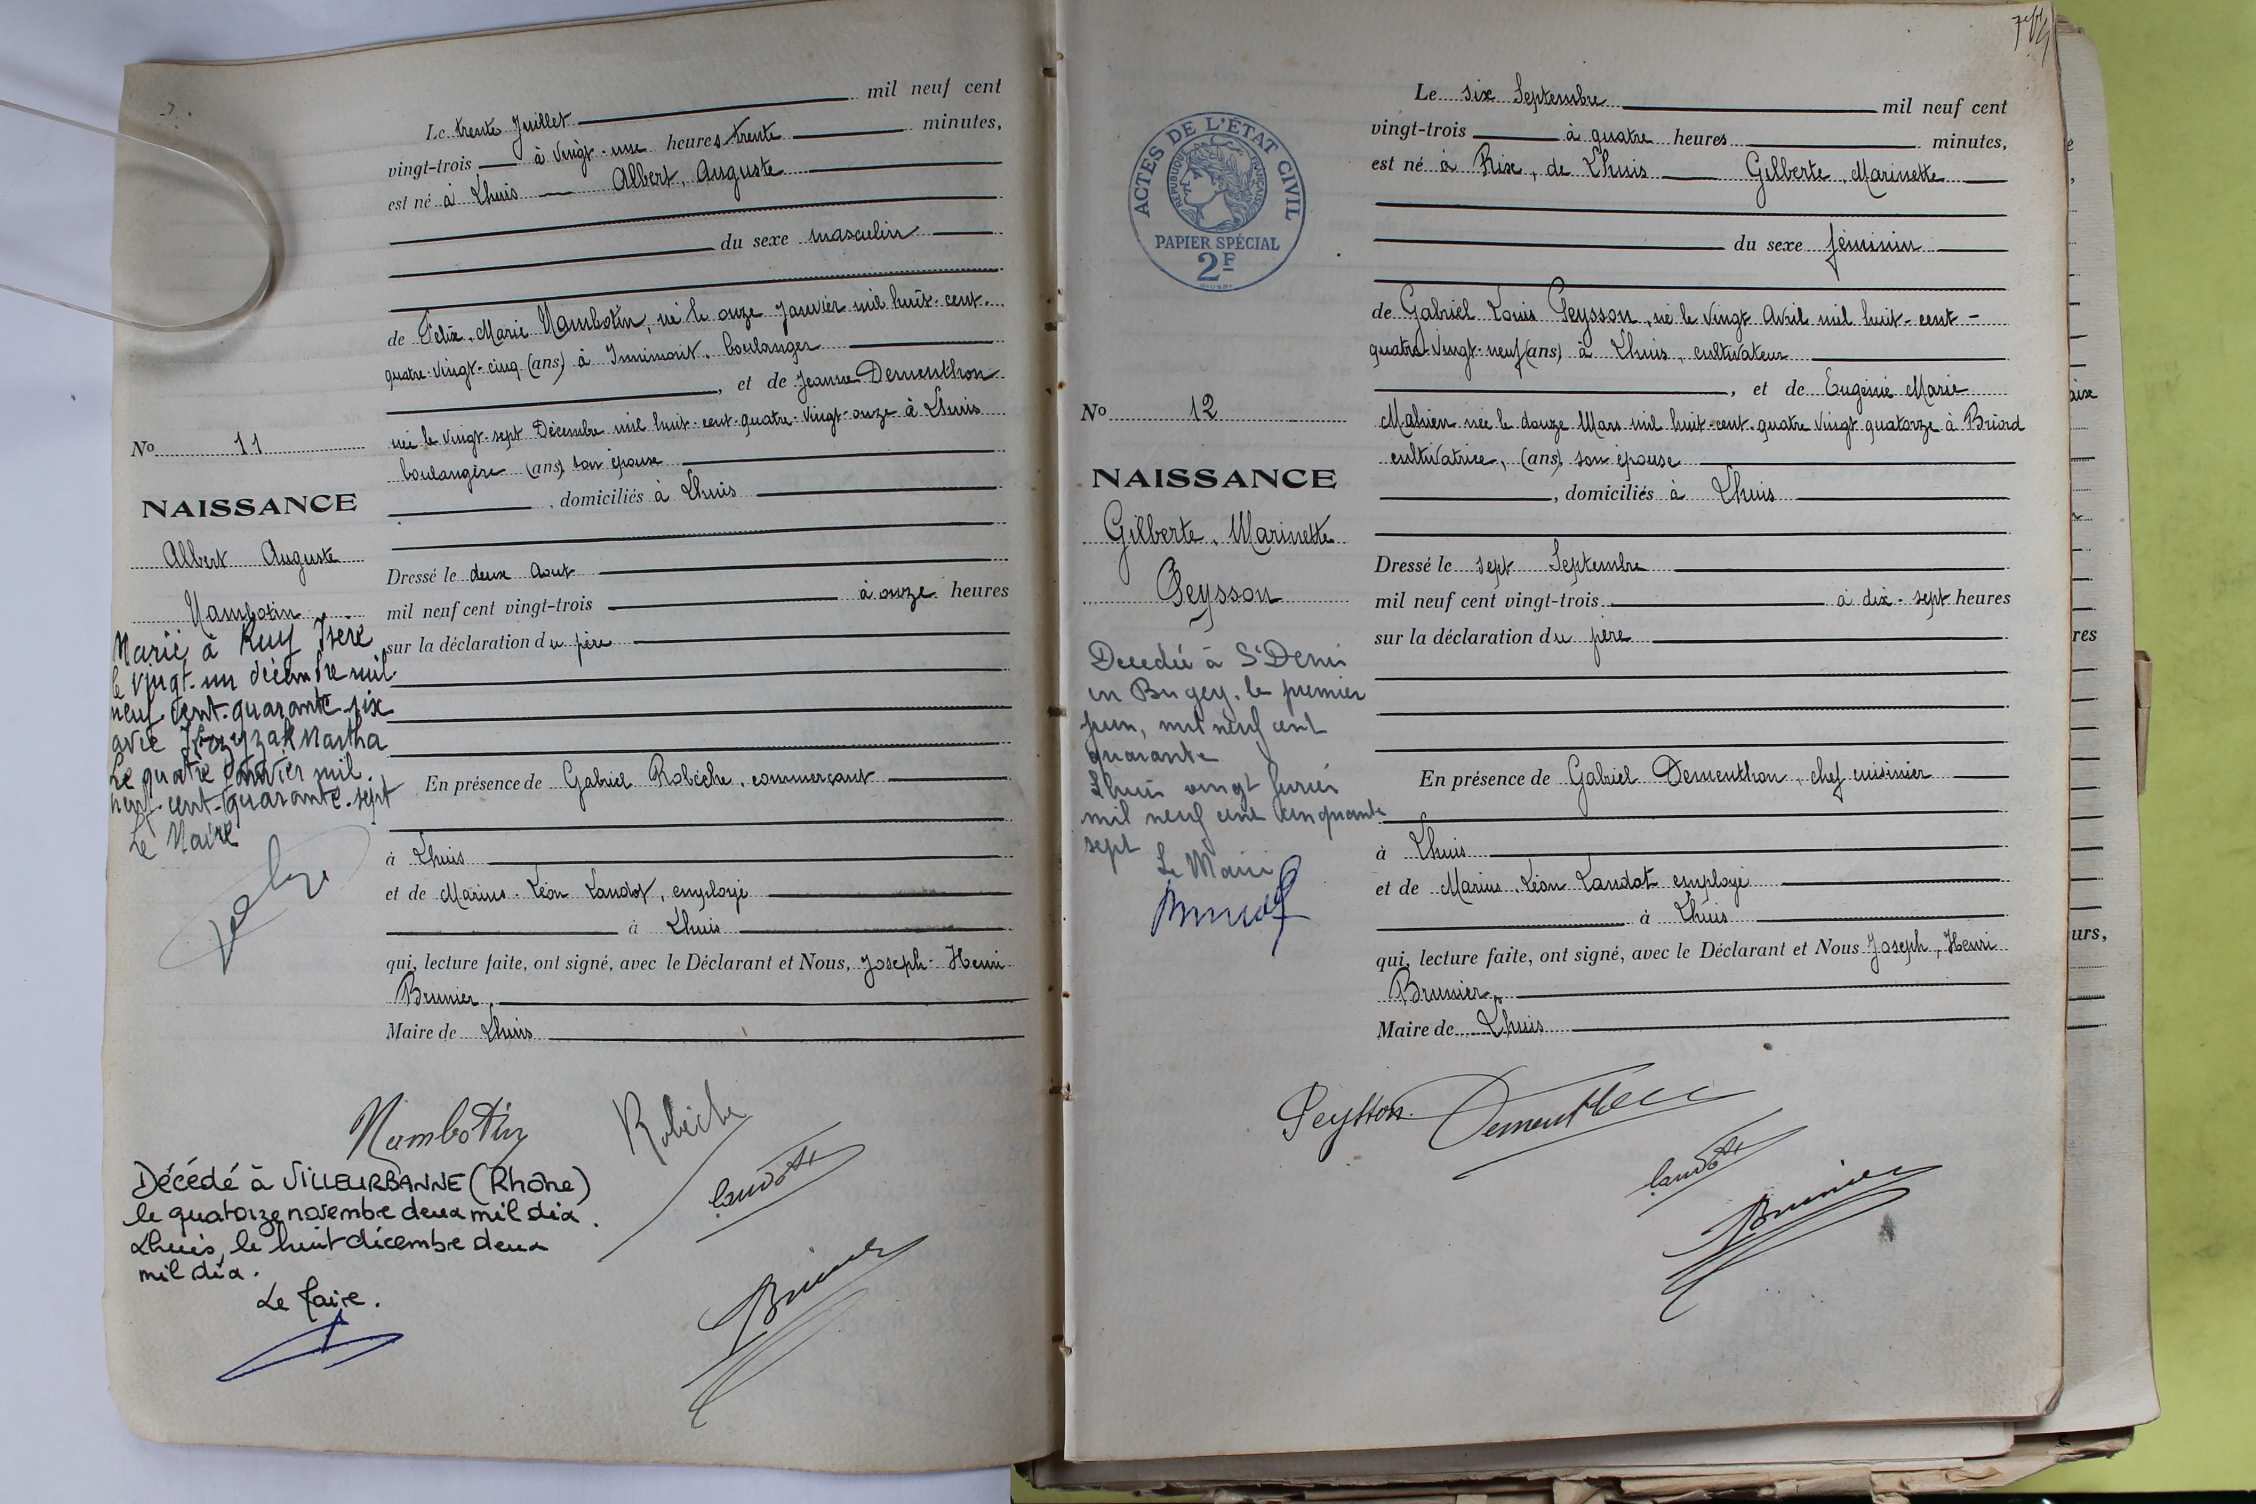 Le trente Juillet mil neuf cent
vingt-trois à vingt-une heures trente minutes,
est né à Lhuis Albert, Auguste
du sexe masculin
de Félix, Marie Nambotin, né le onze Janvier mil huit-cent-
quatre-vingt-cinq (ans) à Innimont, boulanger
, et de Jeanne Dementhon
née le vingt-sept Décembre mil huit-cent-quatre-vingt-onze à Lhuis
boulangère (ans) son épouse
, domiciliés à Lhuis
Dressé le deux Aout
mil neuf cent vingt-trois à onze heures
sur la déclaration du père
En présence de Gabriel Robèche, commerçant
à Lhuis
et de Marius, Léon Landot, employé
à Lhuis
qui, lecture faite, ont signé, avec le Déclarant et Nous, Joseph-Henri
Brunier
Maire de Lhuis
No 11
NAISSANCE
Albert Auguste
Nambotin
Marié à Ruy Isère
le vingt-un décembre mil
neuf cent-quarante-six
avec Martha
Le quatre Janvier mil
neuf-cent-quarante-sept
Le Maire
Nambotin
Robèche
Landot
Brunier
Décédé à VILLEURBANNE (Rhône)
le quatorze novembre deux mil dix.
Lhuis, le huit décembre deux
mil dix.
Le Maire.
ACTES DE L'ÉTAT CIVIL
RÉPUBLIQUE FRANÇAISE
PAPIER SPÉCIAL
2F
Le six Septembre mil neuf cent
vingt-trois à quatre heures minutes,
est né à Rix, de Lhuis Gilberte, Marinette
du sexe féminin
de Gabriel Louis Peysson, né le vingt Avril mil huit-cent-
quatre-vingt-neuf (ans) à Lhuis, cultivateur
, et de Eugénie Marie
née le douze Mars mil huit-cent-quatre vingt quatorze à Briord
cultivatrice, (ans) son épouse
, domiciliés à Lhuis
Dressé le sept Septembre
mil neuf cent vingt-trois à dix-sept heures
sur la déclaration du père
En présence de Gabriel Dementhon, chef cuisinier
à Lhuis
et de Marius, Léon Landot employé
à Lhuis
qui, lecture faite, ont signé, avec le Déclarant et Nous Joseph, Henri
Brunier
Maire de Lhuis
No 12
NAISSANCE
Gilberte, Marinette
Peysson
Decedée à St Denis
en Bugey, le premier
juin, mil neuf cent
quarante
Lhuis vingt
mil neuf cent cinquante
sept
Le Maire
Peysson
Dementhon
Landot
Brunier